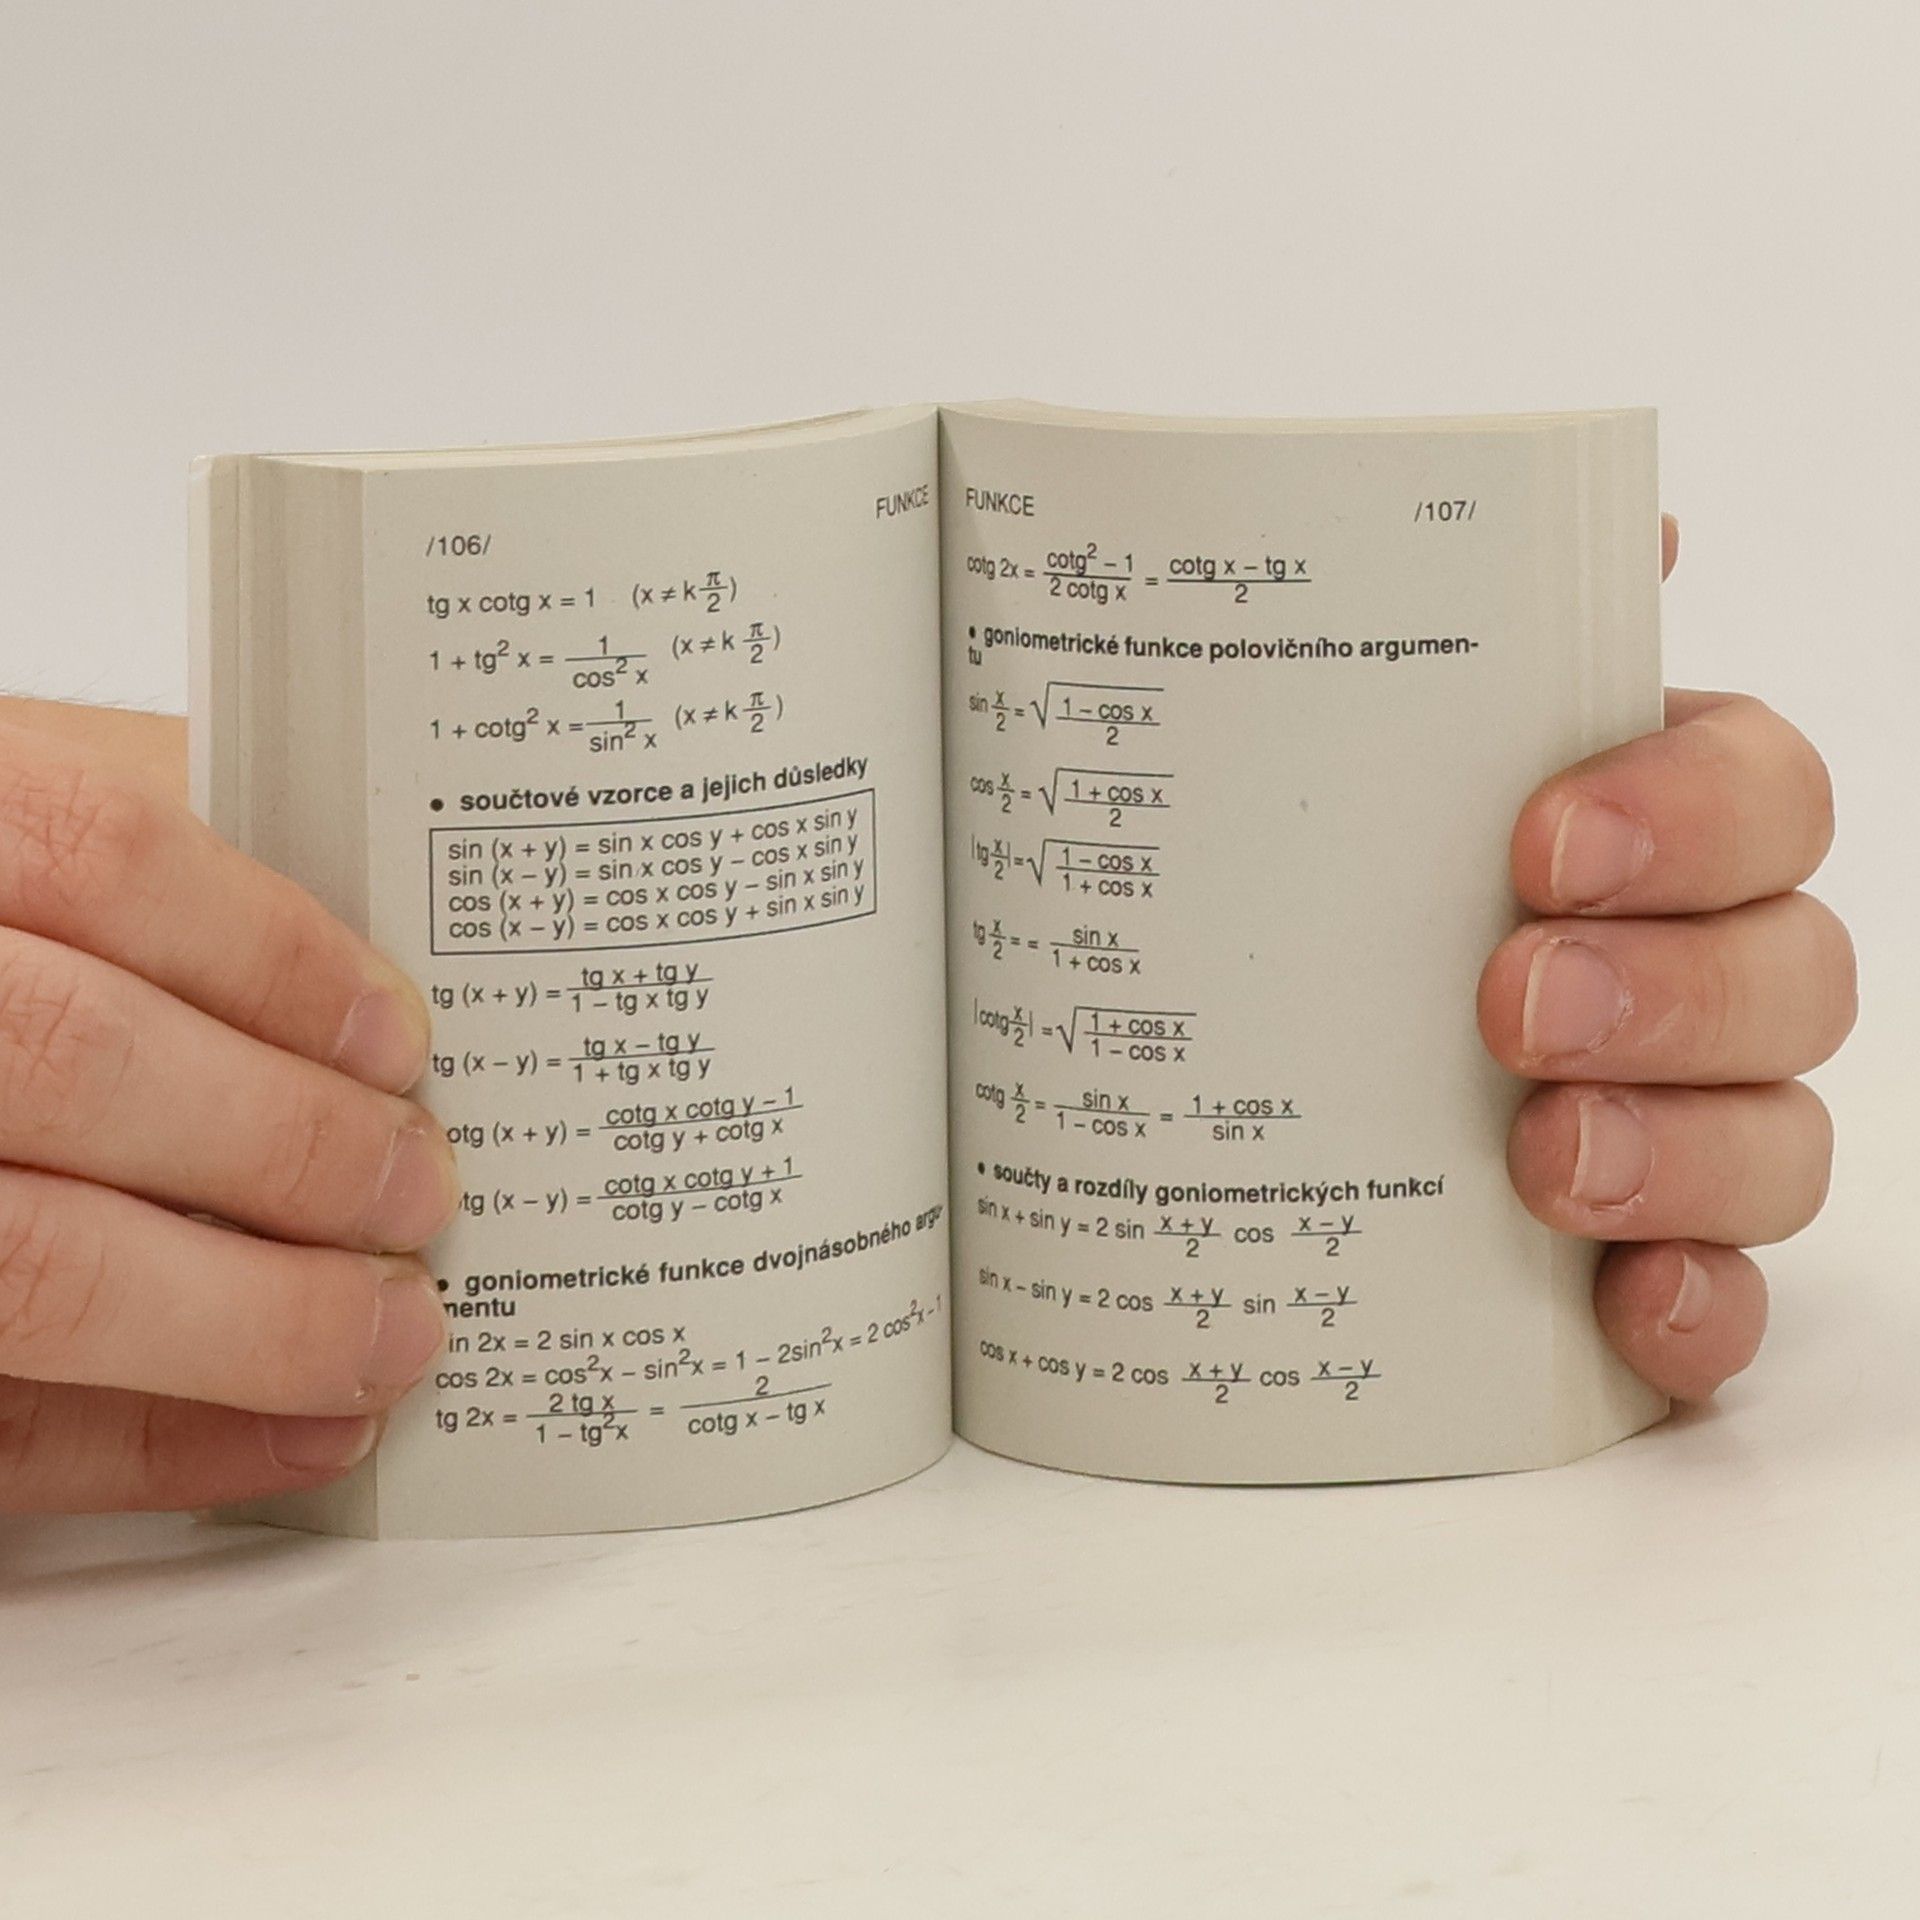 /106/ FUNKCE
tg x cotg x = 1 (x ≠ k π/2)
1 + tg² x = 1/cos² x (x ≠ k π/2)
1 + cotg² x = 1/sin² x (x ≠ k π/2)
• součtové vzorce a jejich důsledky
sin (x + y) = sin x cos y + cos x sin y
sin (x − y) = sin x cos y − cos x sin y
cos (x + y) = cos x cos y − sin x sin y
cos (x − y) = cos x cos y + sin x sin y
tg (x + y) = (tg x + tg y)/(1 − tg x tg y)
tg (x − y) = (tg x − tg y)/(1 + tg x tg y)
otg (x + y) = (cotg x cotg y − 1)/(cotg y + cotg x)
tg (x − y) = (cotg x cotg y + 1)/(cotg y − cotg x)
• goniometrické funkce dvojnásobného argu-
mentu
in 2x = 2 sin x cos x
cos 2x = cos²x − sin²x = 1 − 2sin²x = 2 cos²x − 1
tg 2x = (2 tg x)/(1 − tg²x) = 2/(cotg x − tg x)
FUNKCE /107/
cotg 2x = (cotg² − 1)/(2 cotg x) = (cotg x − tg x)/2
• goniometrické funkce polovičního argumen-
tu
sin x/2 = √((1 − cos x)/2)
cos x/2 = √((1 + cos x)/2)
|tg x/2| = √((1 − cos x)/(1 + cos x))
tg x/2 = = sin x/(1 + cos x)
|cotg x/2| = √((1 + cos x)/(1 − cos x))
cotg x/2 = sin x/(1 − cos x) = (1 + cos x)/sin x
• součty a rozdíly goniometrických funkcí
sin x + sin y = 2 sin (x + y)/2 cos (x − y)/2
sin x − sin y = 2 cos (x + y)/2 sin (x − y)/2
cos x + cos y = 2 cos (x + y)/2 cos (x − y)/2